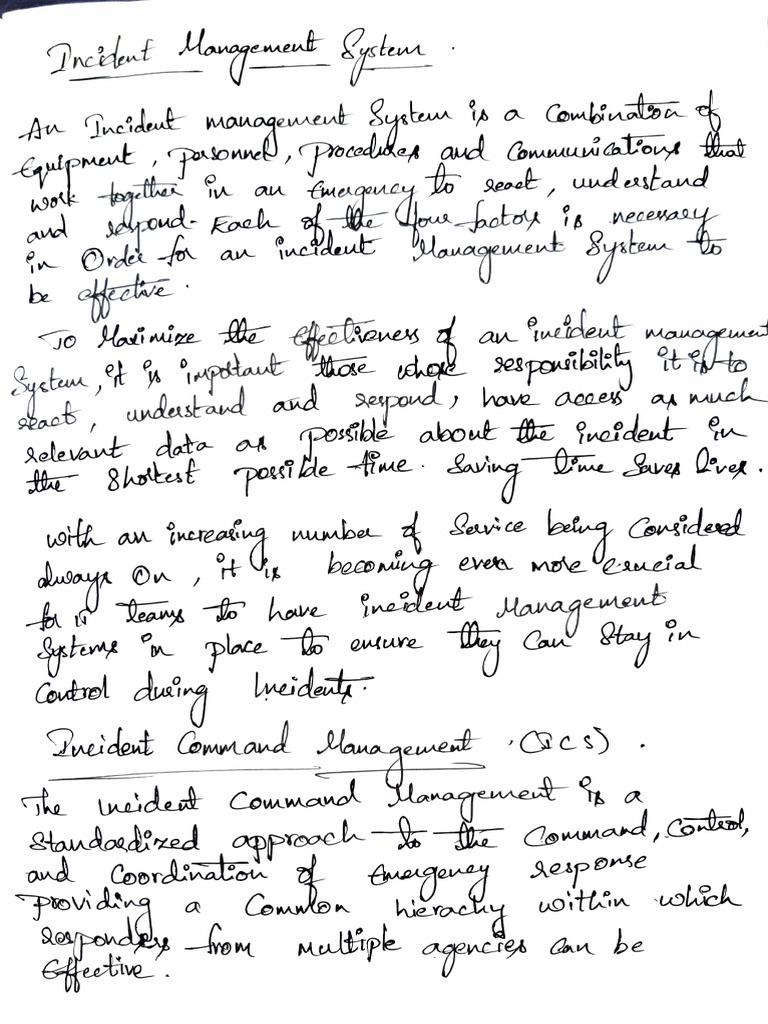 Incident Management System.
An Incident management System is a Combination of
Equipment, personnel, procedures and Communications that
work together in an Emergency to react, understand
and respond. Each of the four factors is necessary
in Order for an incident Management System to
be effective.
To Maximize the effectiveness of an incident management
System, it is important those whose responsibility it is to
react, understand and respond, have access as much
relevant data as possible about the incident in
the shortest possible time. Saving time saves lives.
with an increasing number of Service being Considered
always On, it is becoming even more crucial
for IT teams to have incident Management
Systems in place to ensure they Can Stay in
Control during Incidents.
Incident Command Management. (ICS).
The Incident Command Management is a
Standardized approach to the Command, Control,
and Coordination of Emergency response
Providing a Common hierachy within which
responders from multiple agencies can be
Effective.